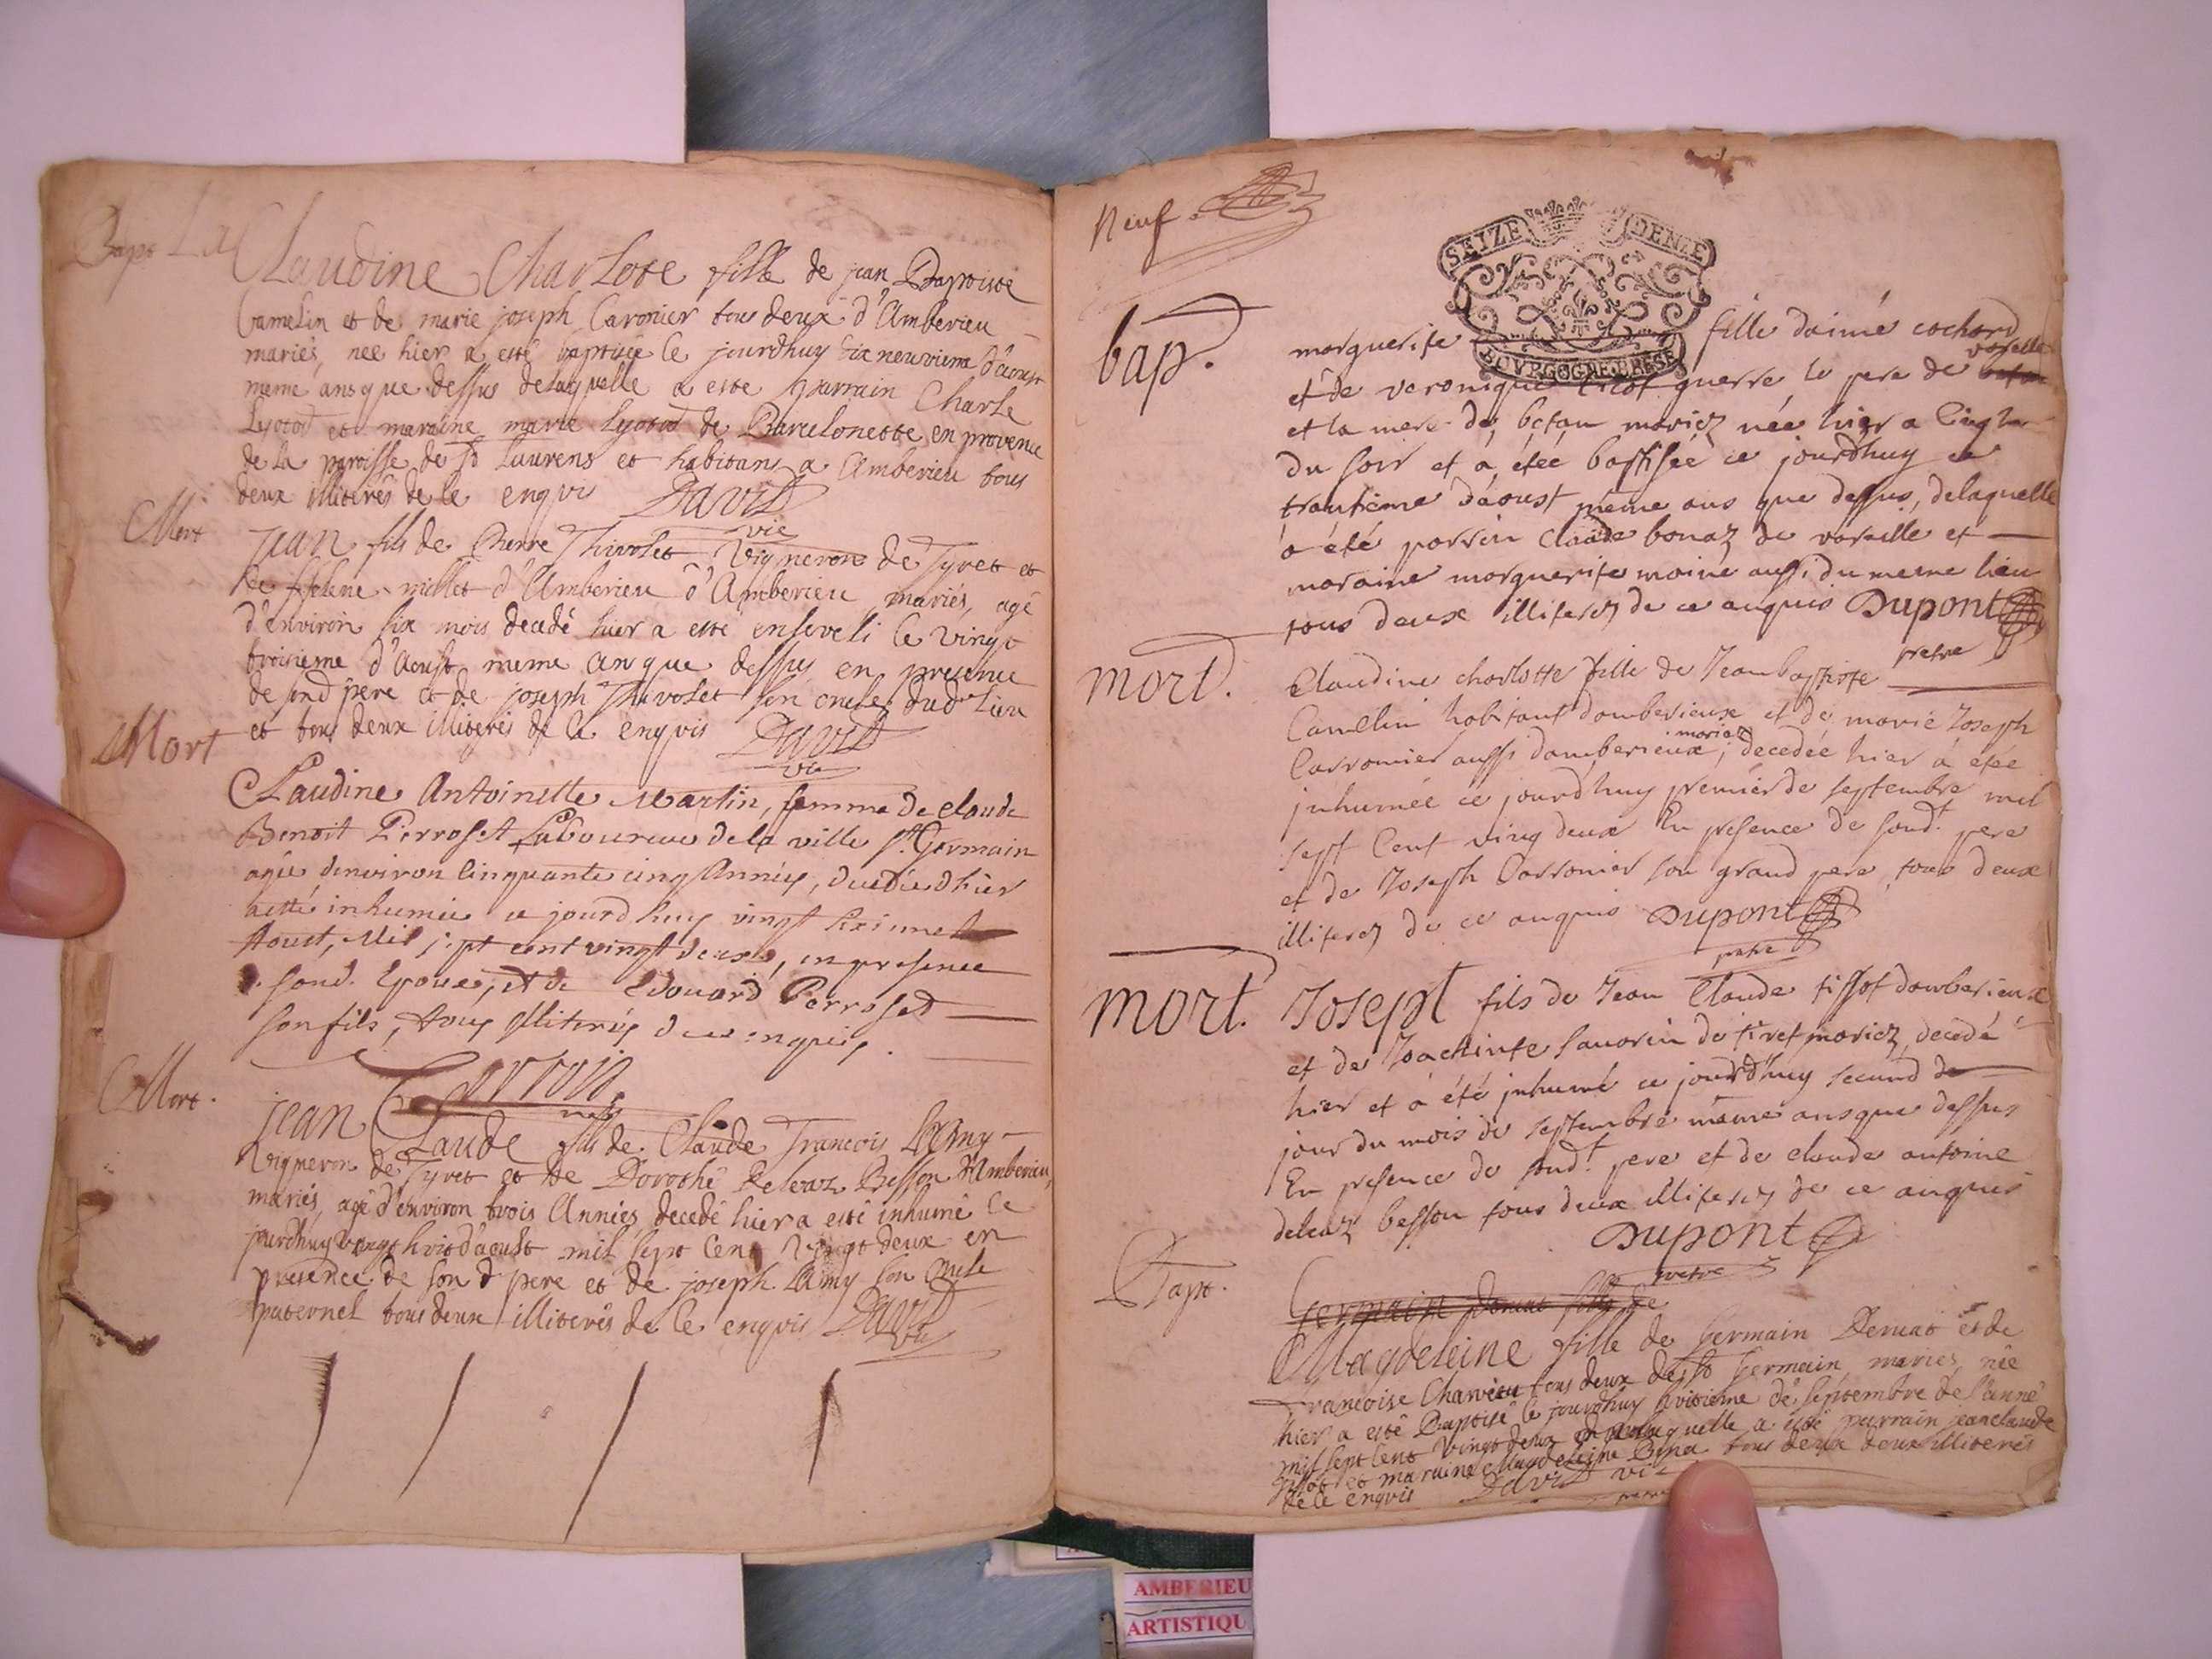 Bapt
Claudine Charlote fille de jean Baptiste
Camelin et de marie joseph Caronier tous deux d'Amberieu
mariés, nee hier a esté baptisée ce jourdhuy dix neuvieme d'aoust
meme ans que dessus delaquelle a esté parrain Charle
et maraine marie de Barcelonette en provence
de la paroisse de st Laurens et habitans a Amberieu tous
deux illiterés de ce enqui David
vic
Mort
jean fils de Pierre Thivolet Vigneron de Tyret et
de millet d'Amberieu d'Amberieu mariés, agé
d'environ six mois decedé hier a esté enseveli ce vingt
troisieme d'Aoust meme an que dessus en presence
de sond pere et de joseph Thivolet son oncle dud lieu
et tous deux illiterés de ce enquis David
vic
Mort
Claudine Antoinette Martin, femme de claude
Benoit Perroset Laboureur de la ville st Germain
agée denviron cinquante cinq Années, decedée d'hier
a etté inhumée ce jourdhuy vingt
Aoust, Mil sept cent vingt deux, en presence
sond. Epoux, et de Edouard Perroset
son fils, tous illiterés de ce enquis.
Mort.
jean Claude fils de Claude francois Lamy
Vigneron de Tyret et de Dorothé Deleaz Besson d'Amberieu,
mariés, agé d'environ trois Années decedé hier a esté inhumé ce
jourdhuy vingt huit d'aoust mil sept Cent vingt deux en
presence de son d pere et de joseph Lamy son oncle
paternel tous deux illiterés de ce enquis David
vic
Neuf.
SEIZE DENIE
BOURGOGNE BRESSE
bap.
marguerite fille daimé cochard
vareille
et de veronique guerre, le pere de
et la mere de betan mariez née hier a
du soir et a étée baptisée ce jourdhuy ce
trantième d'aoust même ans que dessus, delaquelle
a été parrin claude bonaz de vareille et
maraine marguerite moine aussi du meme lieu
tous deux illiterez de ce anquis Dupont
pretre
mort.
Claudine charlotte fille de Jean baptiste
Camelin habitant damberieux et de marie Joseph
mariez
Carronier aussi damberieux, decedée hier a étée
inhumée ce jourd'huy premier de septembre mil
sept Cent vingt deux En presence de sond.t pere
et de Joseph Carronier son grand pere, tous deux
illiterez de ce anquis Dupont
pretre
mort.
Joseph fils de Jean Claude tissot damberieux
et de Joachinte sauarin de tiret mariez, decedé
hier et a été inhumé ce jourd'huy second de
jour du mois de septembre même ans que dessus
En presence de sond.t pere et de claude antoine
deleaz besson tous deux illiterez de ce anquis
Dupont
pretre
Bapt.
Germain fille de
Magdeleine fille de Germain Dernat et de
francoise Charvieu tous deux de st Germain mariés née
hier a esté Baptisé ce jourdhuy huitieme de septembre de l'anné
mil sept Cent vingt deux delaquelle a esté parrain jean claude
et maraine Magdeleine tous deux illiterés
de ce enquis David vic
AMBERIEU
ARTISTIQU